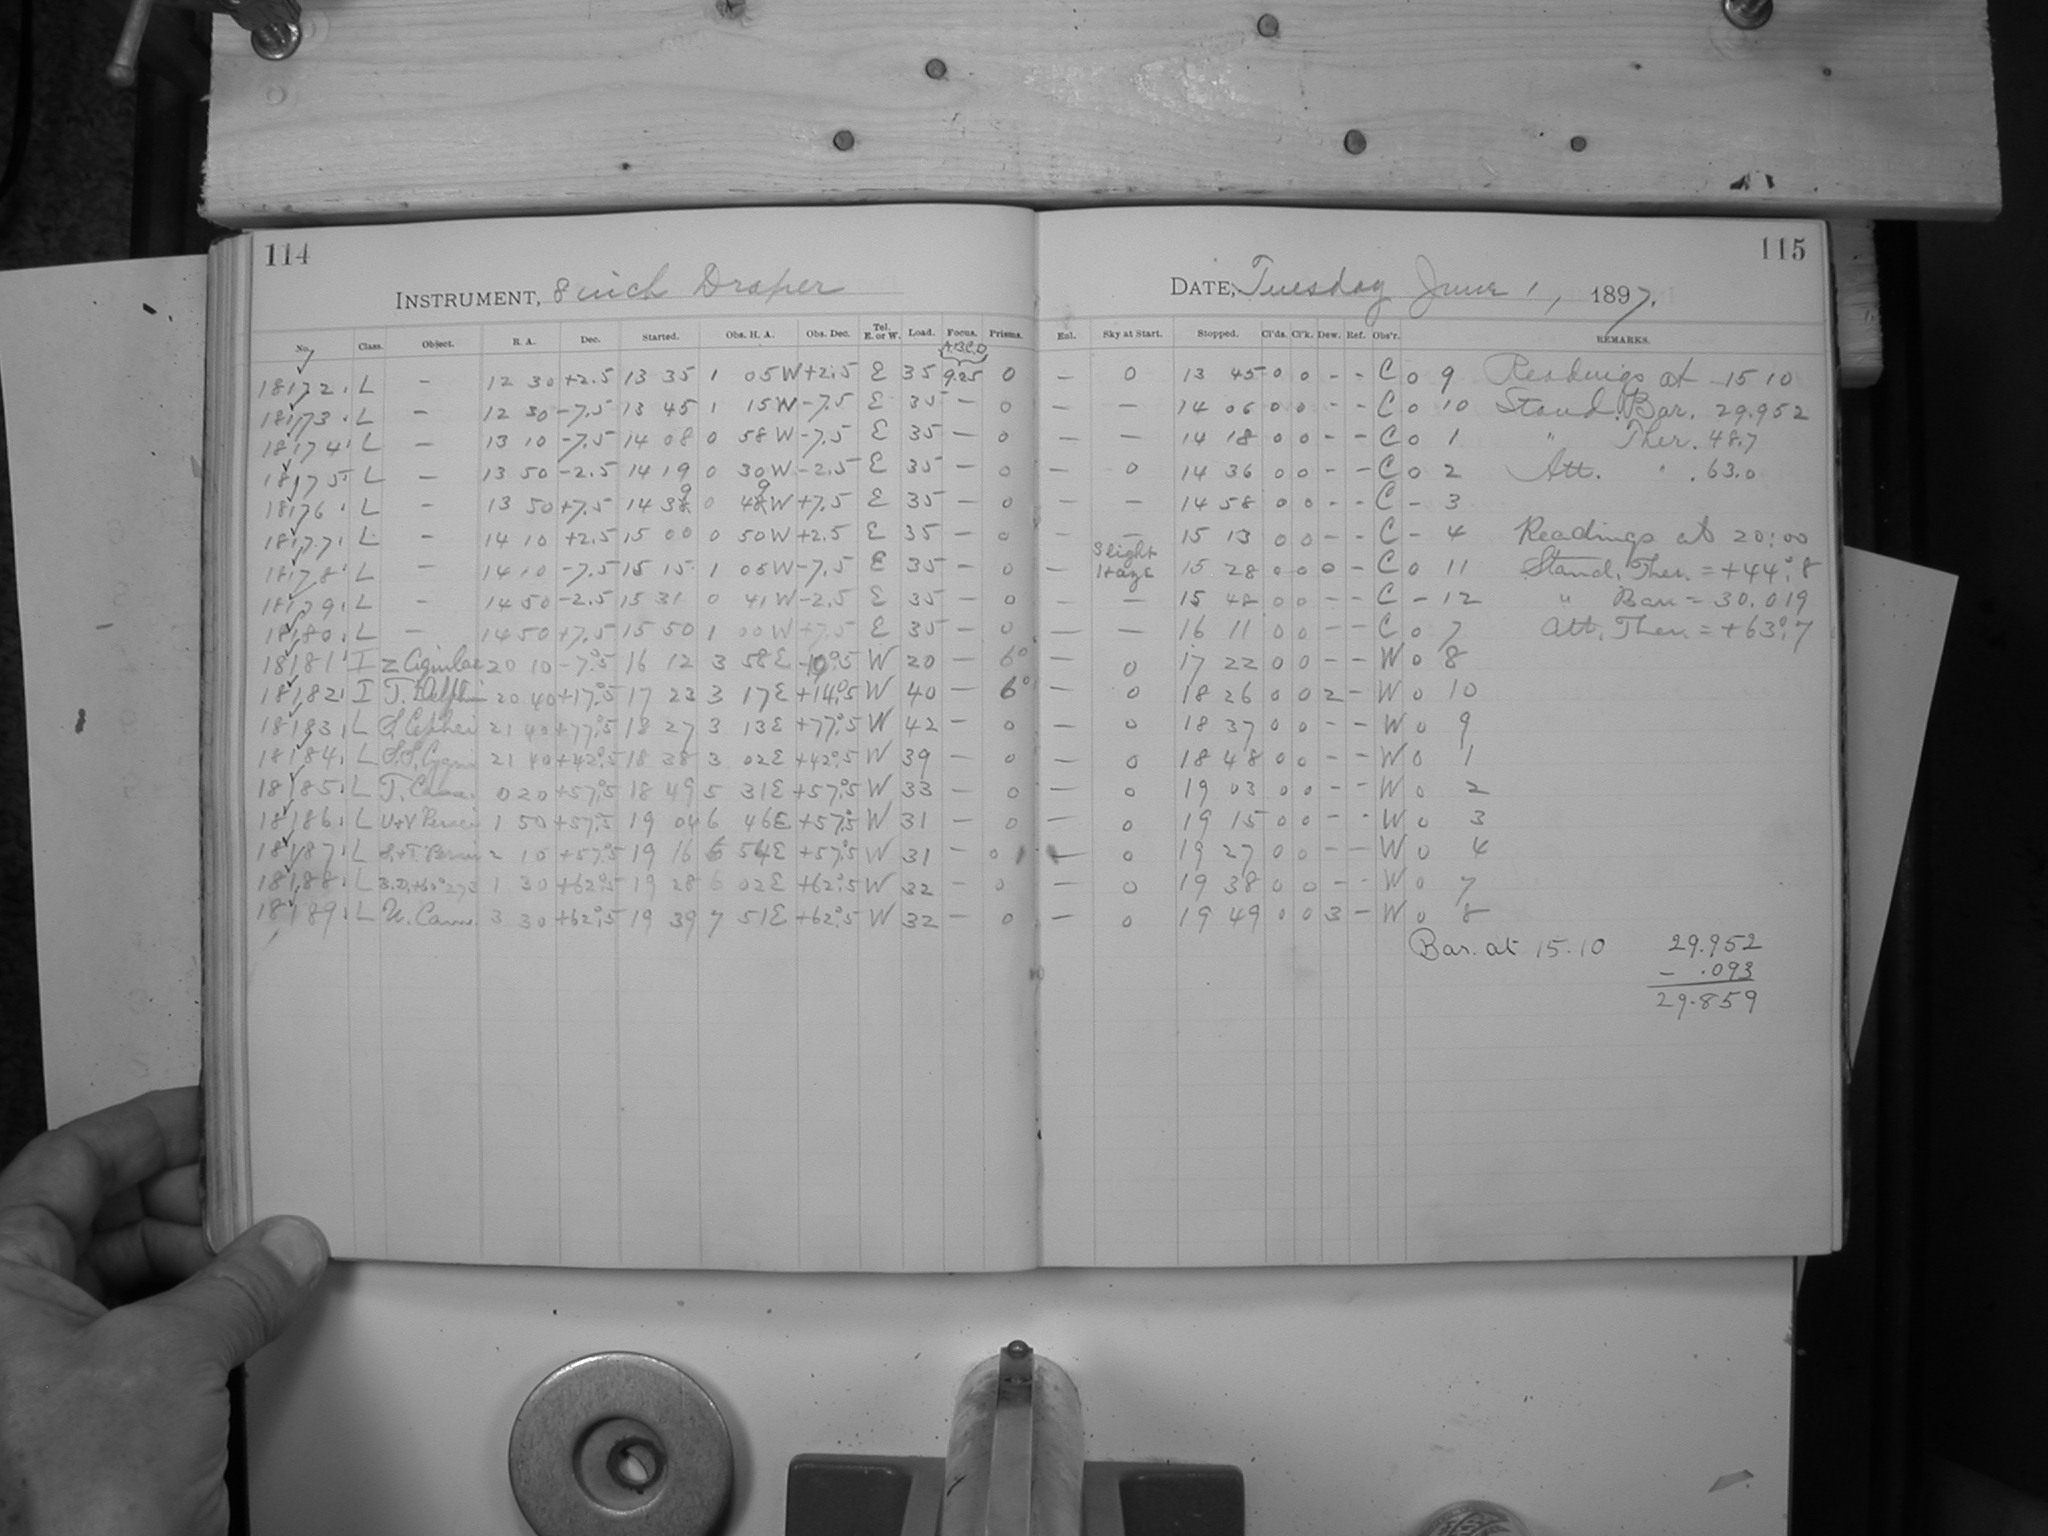 114
INSTRUMENT, 8 inch Draper
No. Class. Object. R. A. Dec. Started. Obs. H. A. Obs. Dec. Tel. E. or W. Load. Focus. Prisms.
A.B.C.D
18172. L - 12 30 +2.5 13 35 1 05W +2.5 E 35 9.25 0
18173. L - 12 30 -7.5 13 45 1 15W -7.5 E 35 - 0
18174. L - 13 10 -7.5 14 08 0 58W -7.5 E 35 - 0
18175. L - 13 50 -2.5 14 19 0 30W -2.5 E 35 - 0
18176. L - 13 50 +7.5 14 39 0 49W +7.5 E 35 - 0
18177. L - 14 10 +2.5 15 00 0 50W +2.5 E 35 - 0
18178. L - 14 10 -7.5 15 15 1 05W -7.5 E 35 - 0
18179. L - 14 50 -2.5 15 31 0 41W -2.5 E 35 - 0
18180. L - 14 50 +7.5 15 50 1 00W +7.5 E 35 - 0
18181. I Z Aquilae 20 10 -7°.5 16 12 3 58E -10°.5 W 20 - 6°
18182. I T. Delphin 20 40 +17°.5 17 23 3 17E +14°.5 W 40 - 6°
18183. L S. Cephei 21 40 +77°.5 18 27 3 13E +77°.5 W 42 - 0
18184. L S.S. Cygni 21 40 +42°.5 18 38 3 02E +42°.5 W 39 - 0
18185. L T. Cass. 0 20 +57°.5 18 49 5 31E +57°.5 W 33 - 0
18186. L U+V Persei 1 50 +57°.5 19 04 6 46E +57°.5 W 31 - 0
18187. L S.+T. Persei 2 10 +57°.5 19 16 6 54E +57°.5 W 31 - 0
18188. L 1 30 +62°.5 19 28 6 02E +62°.5 W 32 - 0
18189. L 3 30 +62°.5 19 39 7 51E +62°.5 W 32 - 0
115
DATE, Tuesday June 1, 1897.
Enl. Sky at Start. Stopped. Cl'ds. Cl'k. Dew. Ref. Obs'r. REMARKS.
- 0 13 45 0 0 - - C 0 9 Readings at 15 10
- - 14 06 0 0 - - C 0 10 Stand. Bar. 29.952
- - 14 18 0 0 - - C 0 1 " Ther. 48.7
- 0 14 36 0 0 - - C 0 2 Att. " . 63.0
- - 14 58 0 0 - - C - 3
- - 15 13 0 0 - - C - 4 Readings at 20:00
- Slight Haze 15 28 0 0 0 - C 0 11 Stand. Ther. = +44°.8
- - 15 48 0 0 - - C - 12 " Bar = 30.019
- - 16 11 0 0 - - C 0 7 Att. Ther. = +63°.7
- 0 17 22 0 0 - - W 0 8
- 0 18 26 0 0 2 - W 0 10
- 0 18 37 0 0 - - W 0 9
- 0 18 48 0 0 - - W 0 1
- 0 19 03 0 0 - - W 0 2
- 0 19 15 0 0 - - W 0 3
- 0 19 27 0 0 - - W 0 4
- 0 19 38 0 0 - - W 0 7
- 0 19 49 0 0 3 - W 0 8
Bar. at 15.10 29.952
- .093
29.859